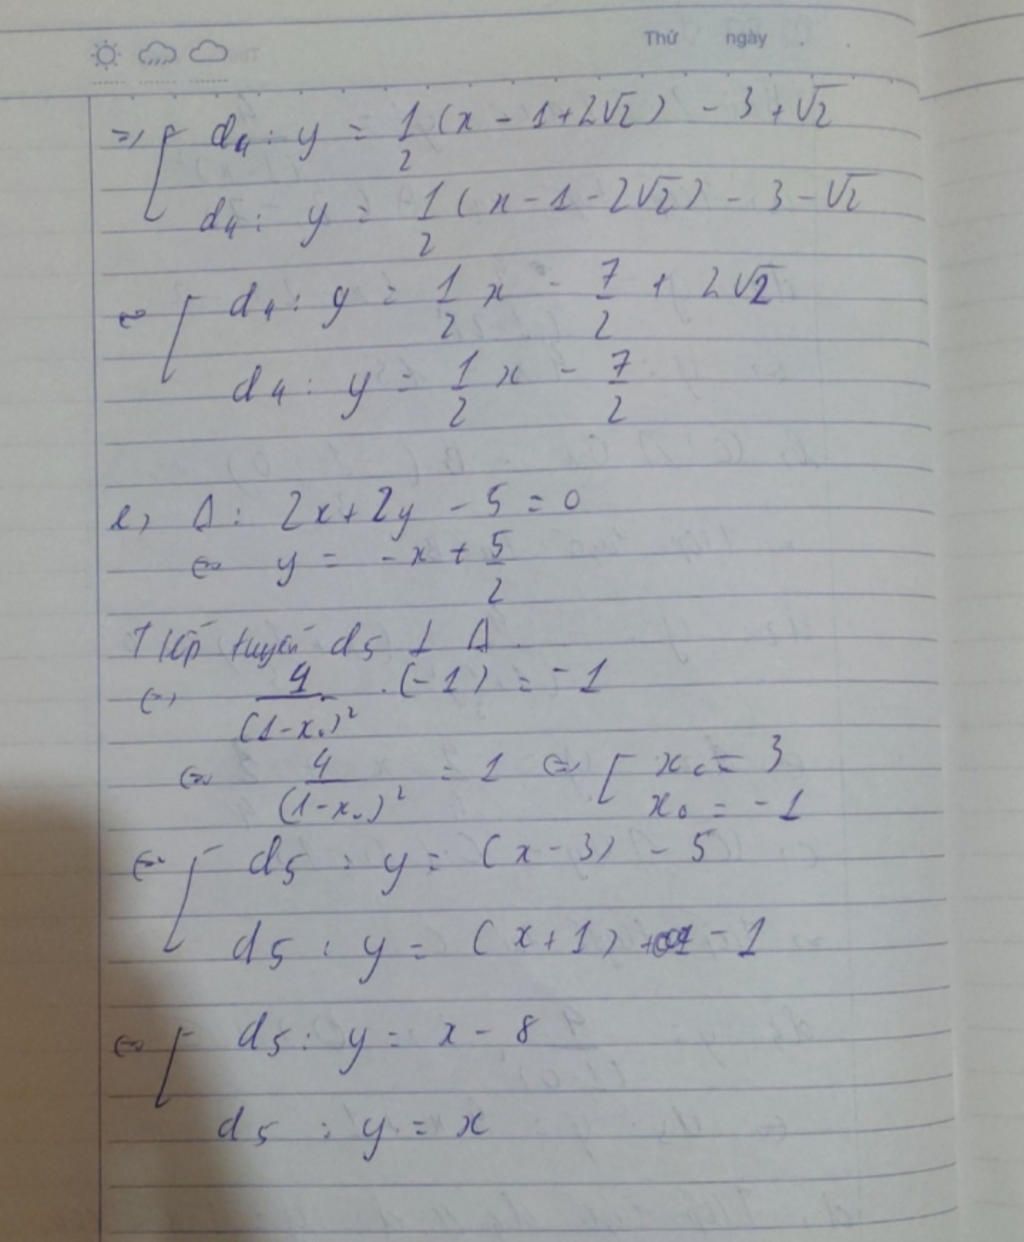 Thứ ngày
=> [ d4 : y = 1/2 (x - 1 + 2√2) - 3 + √2
d4 : y = 1/2 (x - 1 - 2√2) - 3 - √2
⇔ [ d4 : y = 1/2 x - 7/2 + 2√2
d4 : y = 1/2 x - 7/2
e, Δ : 2x + 2y - 5 = 0
⇔ y = -x + 5/2
Tiếp tuyến d5 ⊥ Δ
⇔ 4/(1-x₀)² . (-1) = -1
⇔ 4/(1-x₀)² = 1 ⇔ [ x₀ = 3
x₀ = -1
⇔ [ d5 : y = (x - 3) - 5
d5 : y = (x + 1) - 1
⇔ [ d5 : y = x - 8
d5 : y = x